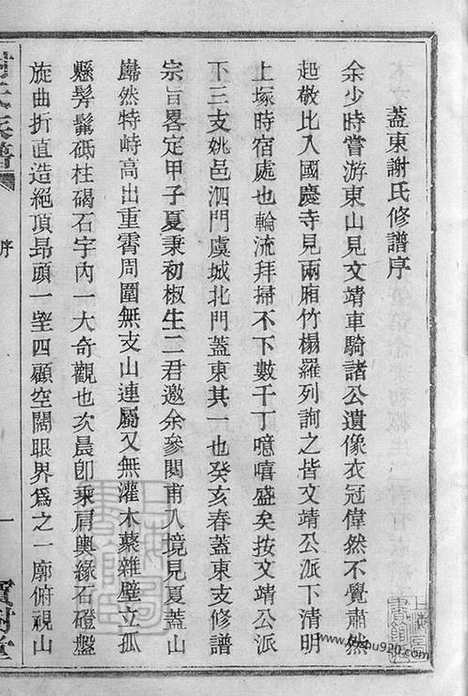 蓋東謝氏修譜序
余少時嘗游東山見文靖車騎諸公遺像衣冠偉然不覺肅然
起敬比入國慶寺見兩廂竹榻羅列詢之皆文靖公派下清明
上塚時宿處也輪流拜掃不下數千丁噫嘻盛矣按文靖公派
下三支姚邑泗門虞城北門蓋東其一也癸亥春蓋東支修譜
宗旨畧定甲子夏秉初椒生二君邀余參閱甫入境見夏蓋山
巋然特峙高出重霄周圍無支山連屬又無灌木蒙雜壁立孤
懸髣髴砥柱碣石宇內一大奇觀也次晨卽乘肩輿緣石磴盤
旋曲折直造絕頂昻頭一望四顧空闊眼界爲之一廓俯視山
序
一
寶樹堂